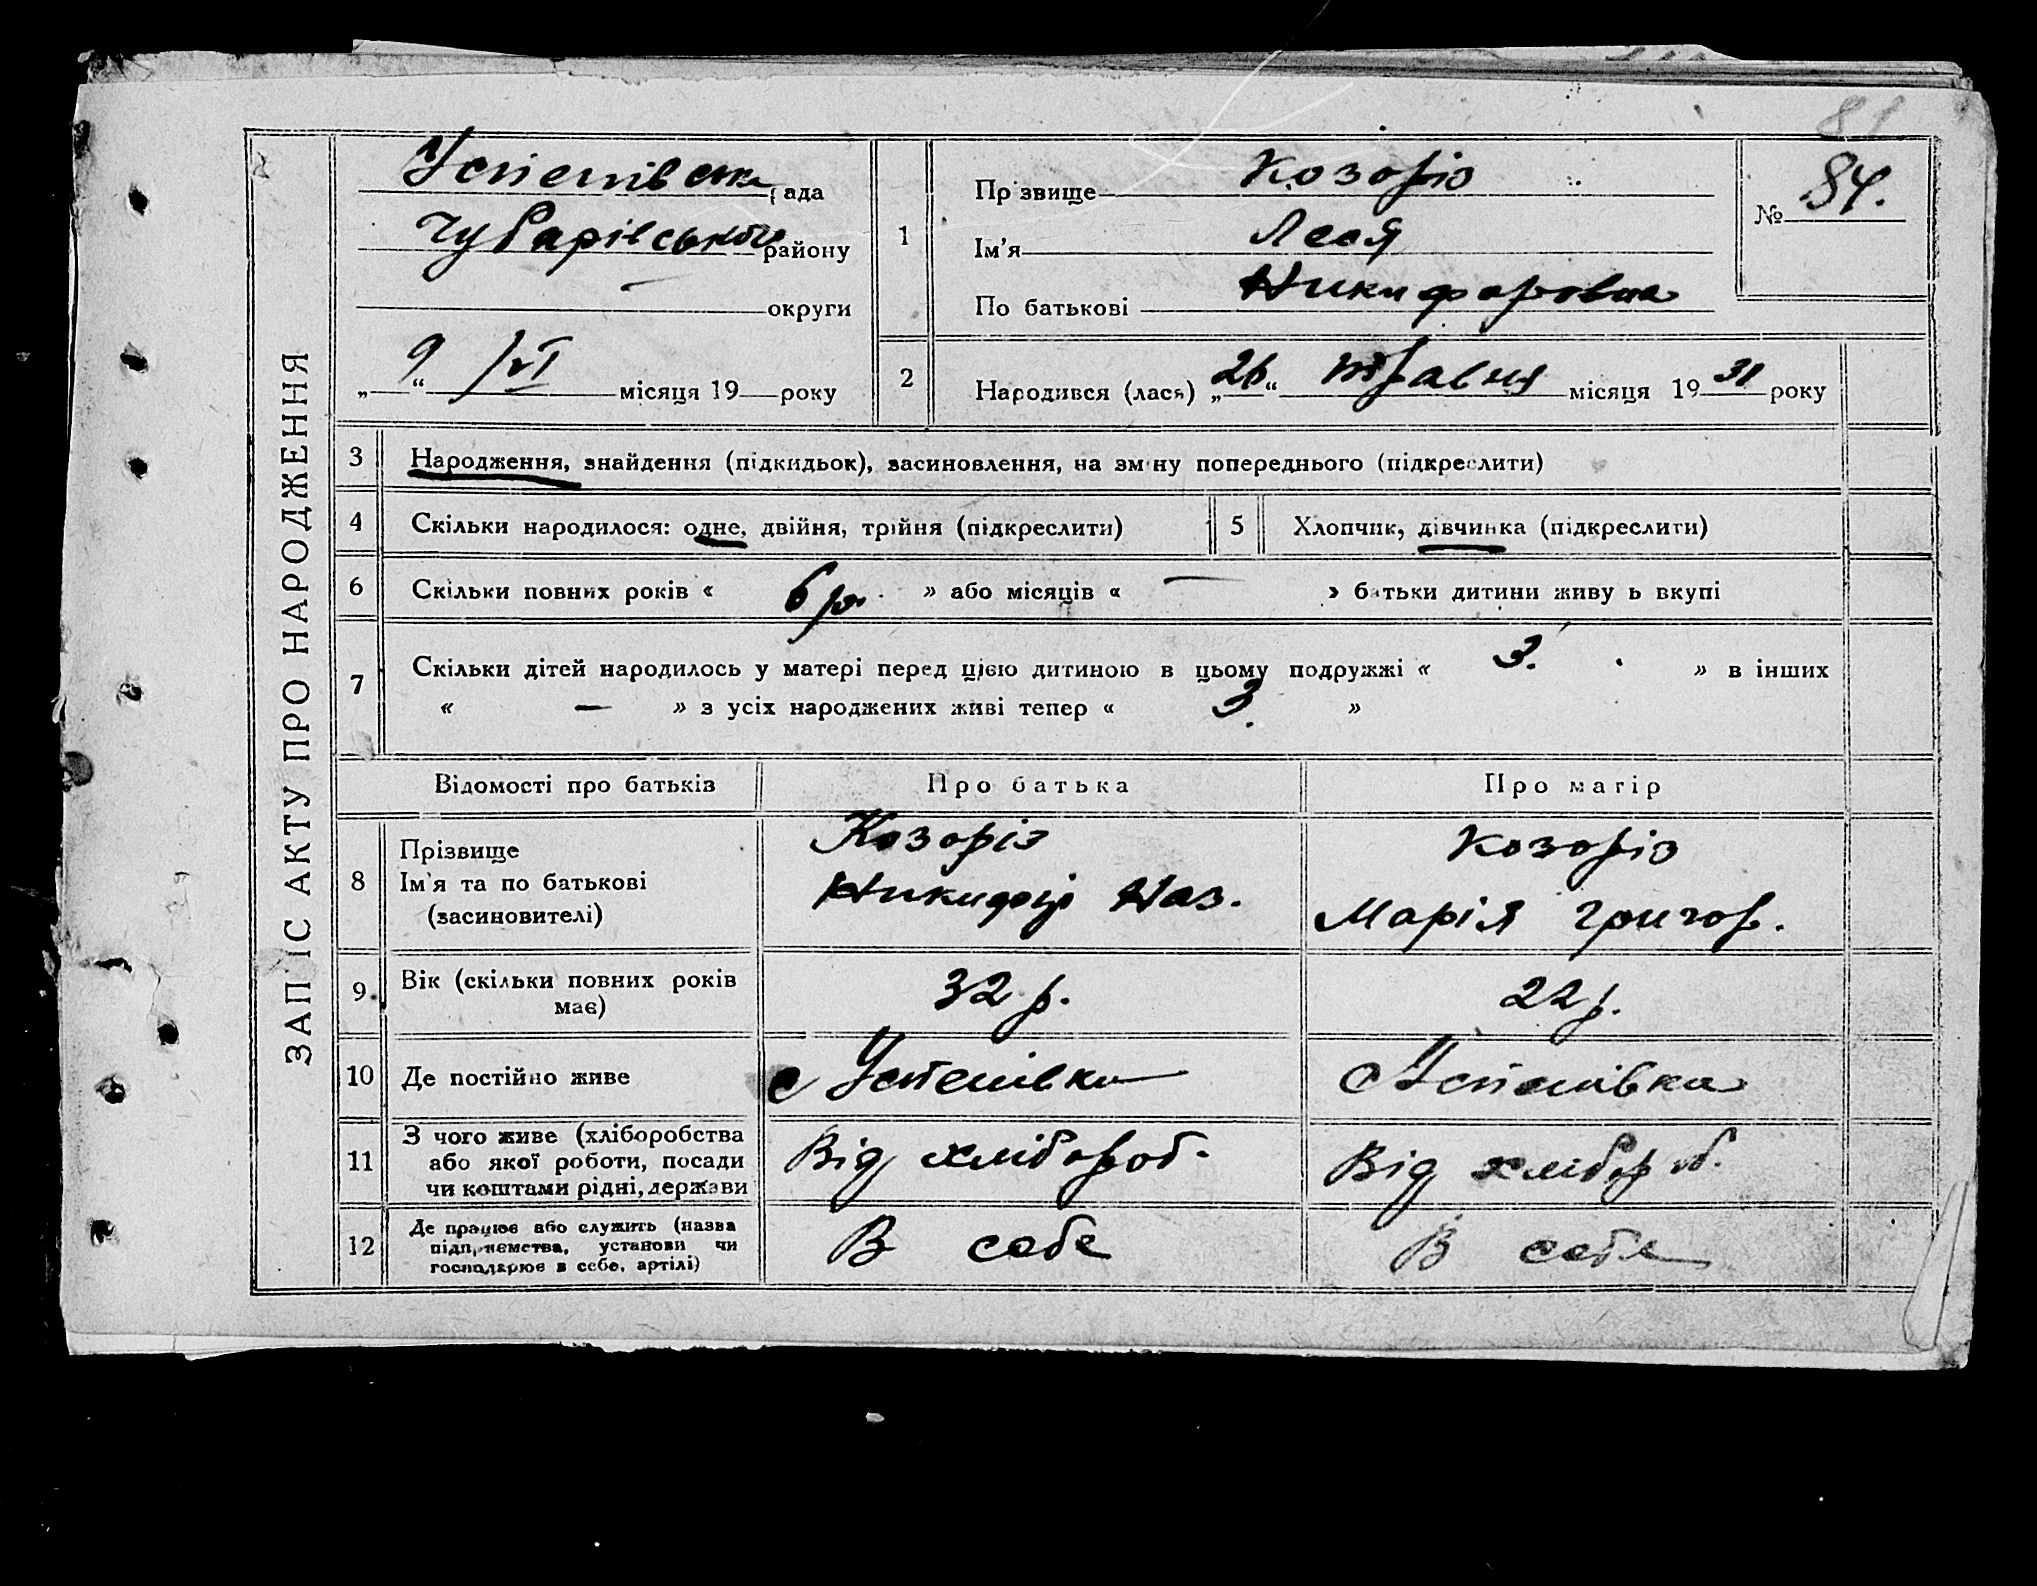 81
ЗАПИС АКТУ ПРО НАРОДЖЕННЯ
Успенівська рада
Чубарівського району
— округи
„ 9 “ /VI місяця 19 року
1
Прізвище Козоріз
Ім’я Леся
По батькові Никифоровна
№ 84.
2
Народився (лася) „26“ травня місяця 1931 року
3 Народження, знайдення (підкидьок), засиновлення, на зміну попереднього (підкреслити)
4 Скільки народилося: одне, двійня, трійня (підкреслити)
5 Хлопчик, дівчинка (підкреслити)
6 Скільки повних років « 6 р. » або місяців « — » батьки дитини живуть вкупі
7 Скільки дітей народилось у матері перед цією дитиною в цьому подружжі « 3. » в інших
« — » з усіх народжених живі тепер « 3. »
Відомості про батьків Про батька Про матір
8 Прізвище
Ім’я та по батькові
(засиновителі)
Козоріз
Никифір Наз.
Козоріз
Марія Григор.
9 Вік (скільки повних років
має)
32 р.
22 р.
10 Де постійно живе
с Успенівка
с Успенівка
11 З чого живе (хліборобства
або якої роботи, посади
чи коштами рідні, держави
Від хлібороб.
Від хлібороб.
12 Де працює або служить (назва
підприємства, установи чи
господарює в себе, артілі)
В себе
В себе